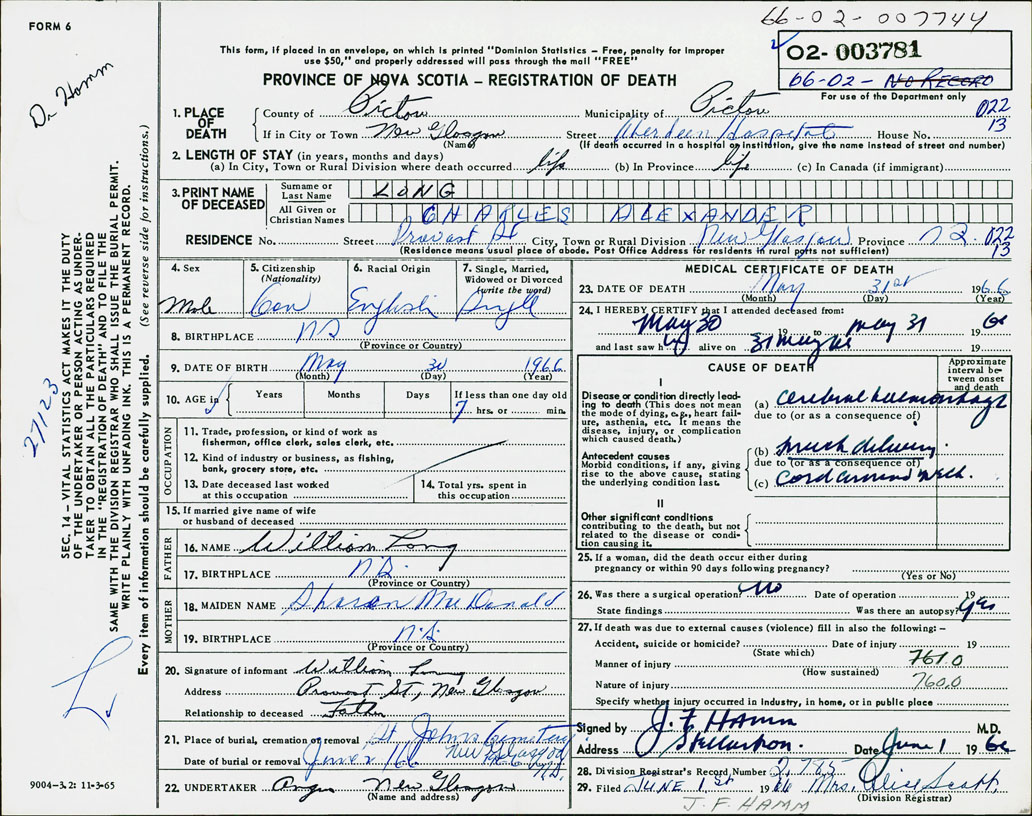 66-02-007744
FORM 6
O2- 003781
66-02- NO RECORD
For use of the Department only
Dr Hamm
This form, if placed in an envelope, on which is printed "Dominion Statistics - Free, penalty for improper
use $50," and properly addressed will pass through the mail "FREE"
PROVINCE OF NOVA SCOTIA - REGISTRATION OF DEATH
1. PLACE OF DEATH County of Pictou Municipality of Pictou 022
If in City or Town New Glasgow Street Aberdeen Hospital House No. 13
(Name) (If death occurred in a hospital or institution, give the name instead of street and number)
2. LENGTH OF STAY (in years, months and days)
(a) In City, Town or Rural Division where death occurred life (b) In Province life (c) In Canada (if immigrant)
3. PRINT NAME OF DECEASED Surname or Last Name LONG
All Given or Christian Names CHARLES ALEXANDER
RESIDENCE No. Street Provost St City, Town or Rural Division New Glasgow Province n.s. 022
(Residence means usual place of abode. Post Office Address for residents in rural parts not sufficient) 13
4. Sex 5. Citizenship (Nationality) 6. Racial Origin 7. Single, Married, Widowed or Divorced (write the word)
Male Can English Single
8. BIRTHPLACE N S
(Province or Country)
9. DATE OF BIRTH May 30 1966
(Month) (Day) (Year)
10. AGE in Years Months Days If less than one day old
7 hrs. or min.
OCCUPATION
11. Trade, profession, or kind of work as
fisherman, office clerk, sales clerk, etc.
12. Kind of industry or business, as fishing,
bank, grocery store, etc.
13. Date deceased last worked
at this occupation
14. Total yrs. spent in
this occupation
15. If married give name of wife
or husband of deceased
FATHER
16. NAME William Long
17. BIRTHPLACE N.S.
(Province or Country)
MOTHER
18. MAIDEN NAME Sharon MacDonald
19. BIRTHPLACE N.S.
(Province or Country)
20. Signature of informant William Long
Address Provost St, New Glasgow
Relationship to deceased Father
21. Place of burial, cremation or removal St John's Cemetery
New Glasgow
Date of burial or removal June 1 66 N.S.
22. UNDERTAKER Angus New Glasgow
(Name and address)
MEDICAL CERTIFICATE OF DEATH
23. DATE OF DEATH May 31st 1966
(Month) (Day) (Year)
24. I HEREBY CERTIFY that I attended deceased from:
May 30 19 to May 31 19 66
and last saw h alive on 31 May 66 19
CAUSE OF DEATH
Approximate interval between onset and death
I
Disease or condition directly leading to death (This does not mean the mode of dying, e.g., heart failure, asthenia, etc. It means the disease, injury, or complication which caused death.)
(a) cerebral haemorrhage
due to (or as a consequence of)
Antecedent causes
Morbid conditions, if any, giving rise to the above cause, stating the underlying condition last.
(b) breech delivery
due to (or as a consequence of)
(c) Cord around neck.
II
Other significant conditions
contributing to the death, but not related to the disease or condition causing it.
25. If a woman, did the death occur either during
pregnancy or within 90 days following pregnancy?
(Yes or No)
26. Was there a surgical operation? No Date of operation 19
State findings Was there an autopsy? Yes
27. If death was due to external causes (violence) fill in also the following: -
Accident, suicide or homicide? Date of injury 19
(State which)
Manner of injury 761.0
(How sustained)
Nature of injury 760.0
Specify whether injury occurred in Industry, in home, or in public place
Signed by J. F HAMM M.D.
Address Stellarton. Date June 1 19 66
28. Division Registrar's Record Number 2,785
29. Filed JUNE 1st 1966 Mrs. Alice Scott
(Division Registrar)
J. F. HAMM
SEC. 14 - VITAL STATISTICS ACT MAKES IT THE DUTY
OF THE UNDERTAKER OR PERSON ACTING AS UNDER-
TAKER TO OBTAIN ALL THE PARTICULARS REQUIRED
IN THE "REGISTRATION OF DEATH" AND TO FILE THE
SAME WITH THE DIVISION REGISTRAR WHO SHALL ISSUE THE BURIAL PERMIT.
WRITE PLAINLY WITH UNFADING INK. THIS IS A PERMANENT RECORD.
Every item of information should be carefully supplied. (See reverse side for instructions.)
27123
L
9004-3.2: 11-3-65